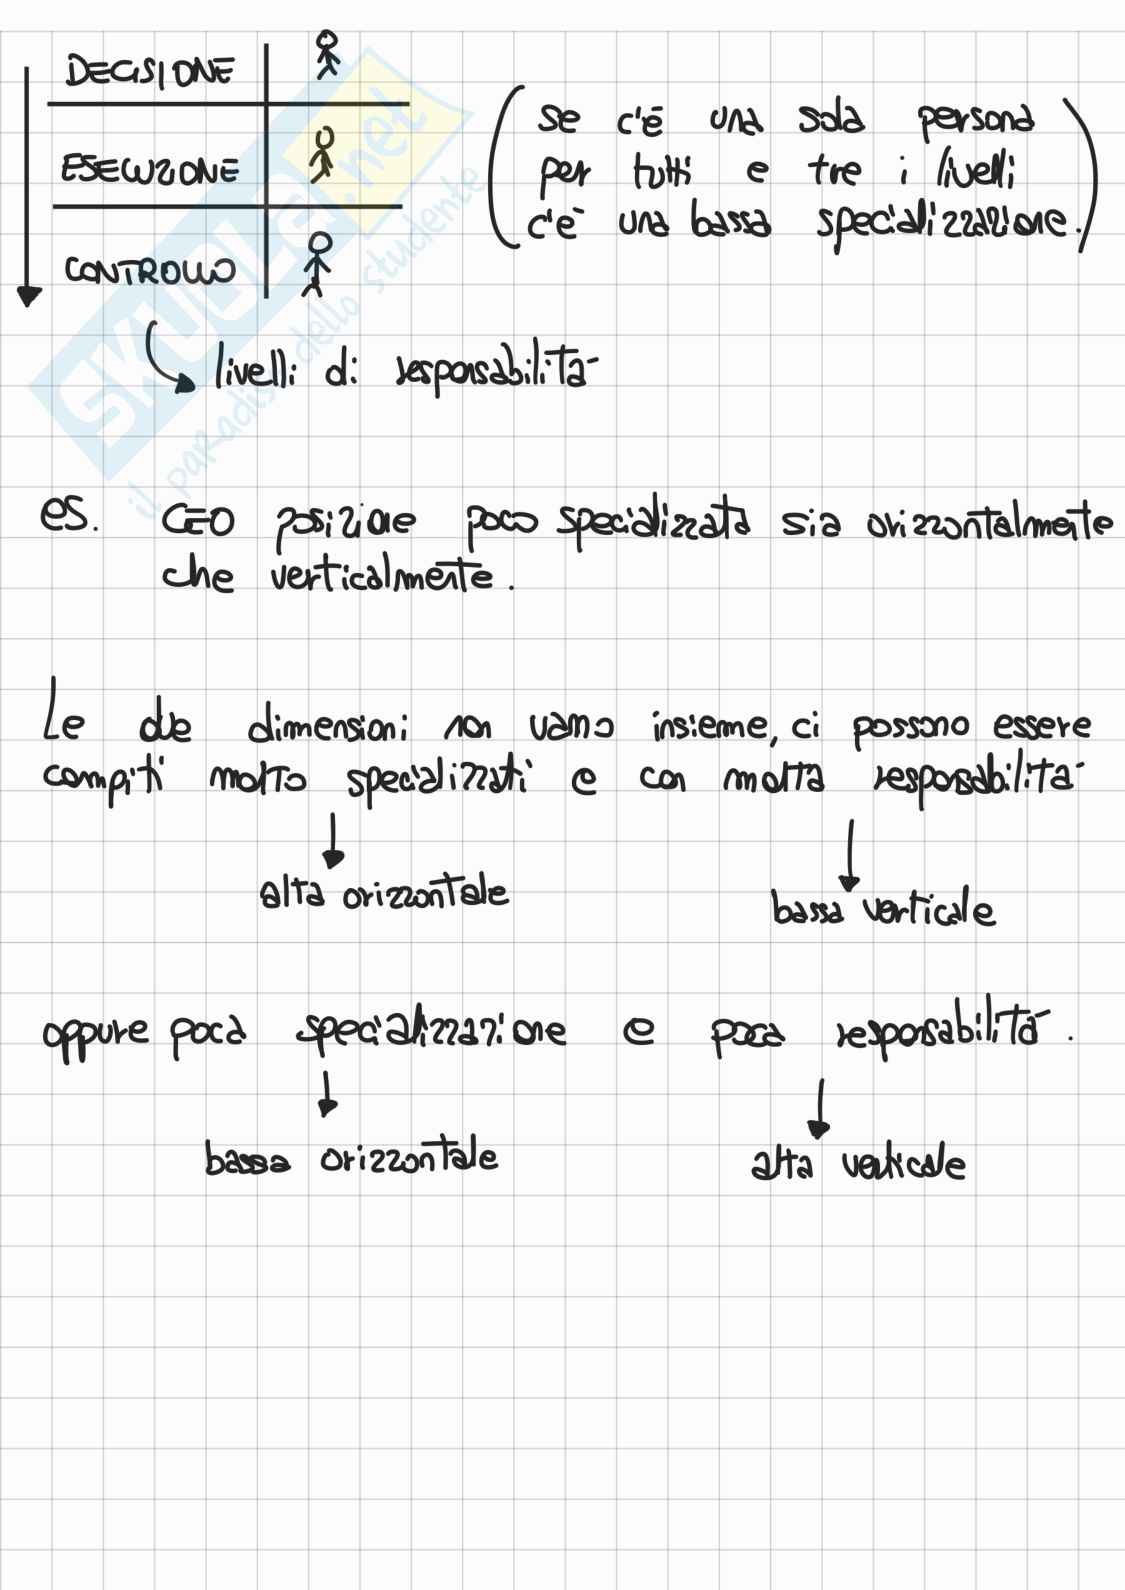 DECISIONE
ESECUZIONE
CONTROLLO
(se c'è una sola persona
per tutti e tre i livelli
c'è una bassa specializzazione.)
livelli di responsabilità
es. CEO posizione poco specializzata sia orizzontalmente
che verticalmente.
Le due dimensioni non vanno insieme, ci possono essere
compiti molto specializzati e con molta responsabilità
alta orizzontale
bassa verticale
oppure poca specializzazione e poca responsabilità.
bassa orizzontale
alta verticale
SKUOLA.net
il paradiso dello studente